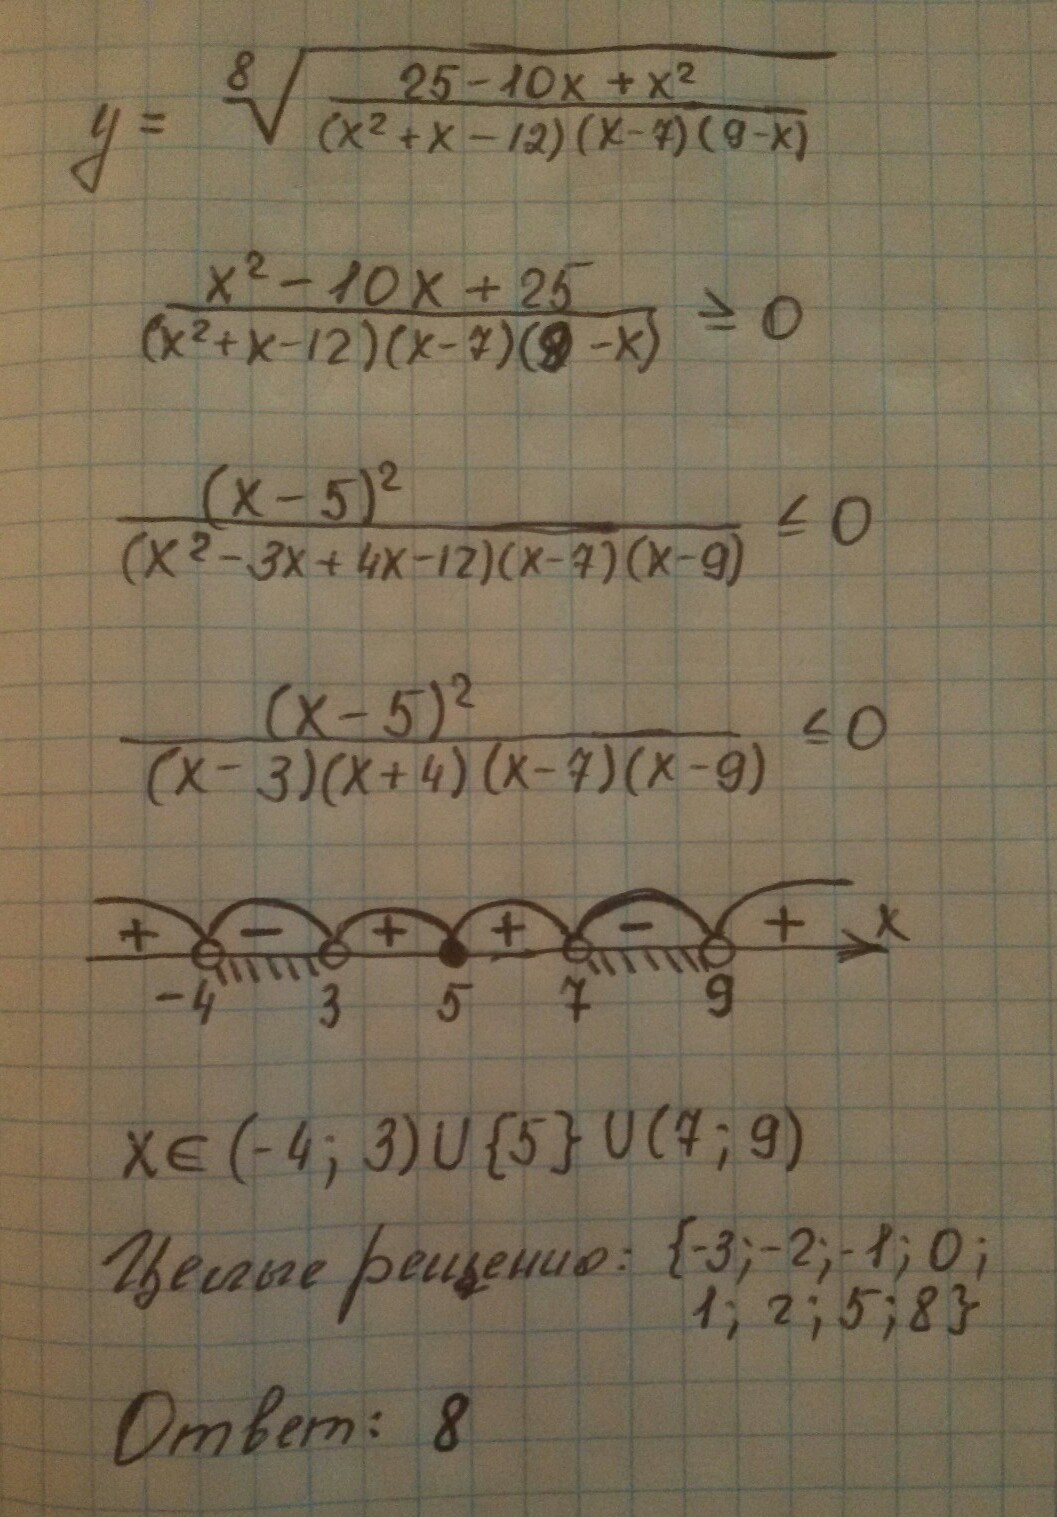 y = ⁸√((25 - 10x + x²) / ((x² + x - 12)(x - 7)(9 - x)))
(x² - 10x + 25) / ((x² + x - 12)(x - 7)(9 - x)) ≥ 0
(x - 5)² / ((x² - 3x + 4x - 12)(x - 7)(x - 9)) ≤ 0
(x - 5)² / ((x - 3)(x + 4)(x - 7)(x - 9)) ≤ 0
+ - + + - + x
-4 3 5 7 9
x ∈ (-4; 3) ∪ {5} ∪ (7; 9)
Целые решению: {-3; -2; -1; 0;
1; 2; 5; 8}
Ответ: 8